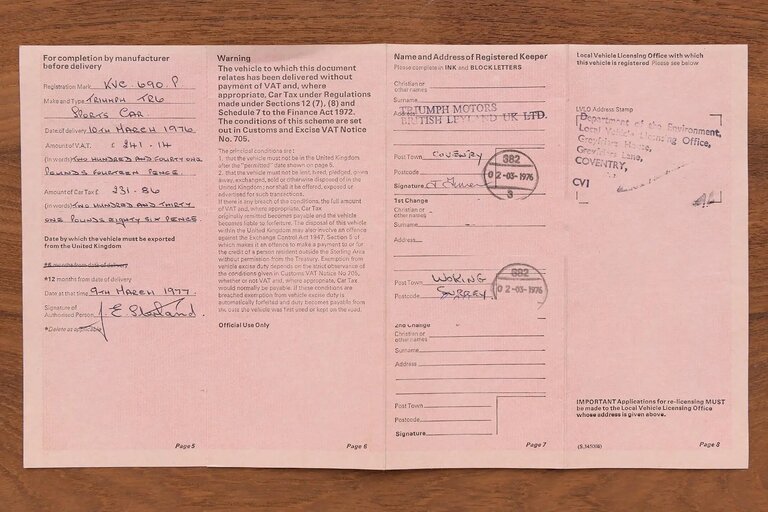 For completion by manufacturer
before delivery
Registration Mark KVC 690 P
Make and Type TRIUMPH TR6
SPORTS CAR
Date of delivery 10TH MARCH 1976
Amount of V.A.T. £ 241 . 14
(in words) TWO HUNDRED AND FOURTY ONE
POUNDS FOURTEEN PENCE.
Amount of Car Tax £ 231 . 86
(in words) TWO HUNDRED AND THIRTY
ONE POUNDS EIGHTY SIX PENCE.
Date by which the vehicle must be exported
from the United Kingdom
*6 months from date of delivery
*12 months from date of delivery
Date at that time 9TH MARCH 1977.
Signature of
Authorised Person
*Delete as applicable
Page 5
Warning
The vehicle to which this document
relates has been delivered without
payment of VAT and, where
appropriate, Car Tax under Regulations
made under Sections 12 (7), (8) and
Schedule 7 to the Finance Act 1972.
The conditions of this scheme are set
out in Customs and Excise VAT Notice
No. 705.
The principal conditions are:
1. that the vehicle must not be in the United Kingdom
after the "permitted" date shown on page 5.
2. that the vehicle must not be lent, hired, pledged, given
away, exchanged, sold or otherwise disposed of in the
United Kingdom; nor shall it be offered, exposed or
advertised for such transactions.
If there is any breach of the conditions, the full amount
of VAT and, where appropriate, Car Tax
originally remitted becomes payable and the vehicle
becomes liable to forfeiture. The disposal of this vehicle
within the United Kingdom may also involve an offence
against the Exchange Control Act 1947, Section 5 of
which makes it an offence to make a payment to or for the
credit of a person resident outside the Sterling Area
without permission from the Treasury. Exemption from
vehicle excise duty depends on the strict observance of
the conditions given in Customs VAT Notice No 705,
whether or not VAT and, where appropriate, Car Tax
would normally be payable. If these conditions are
breached exemption from vehicle excise duty is
automatically forfeited and duty becomes payable from
the date the vehicle was first used or kept on the road.
Official Use Only
Page 6
Name and Address of Registered Keeper
Please complete in INK and BLOCK LETTERS
Christian or
other names
Surname
Address
TRIUMPH MOTORS
BRITISH LEYLAND UK LTD.
Post Town COVENTRY
Postcode
Signature
882
02-03-1976
3
1st Change
Christian or
other names
Surname
Address
Post Town WOKING
Postcode SURREY
882
02-03-1976
2nd Change
Christian or
other names
Surname
Address
Post Town
Postcode
Signature
Page 7
Local Vehicle Licensing Office with which
this vehicle is registered Please see below
LVLO Address Stamp
Department of the Environment,
Local Vehicle Licensing Office,
Greyfriars House,
Greyfriars Lane,
COVENTRY,
CV1
IMPORTANT Applications for re-licensing MUST
be made to the Local Vehicle Licensing Office
whose address is given above.
Page 8